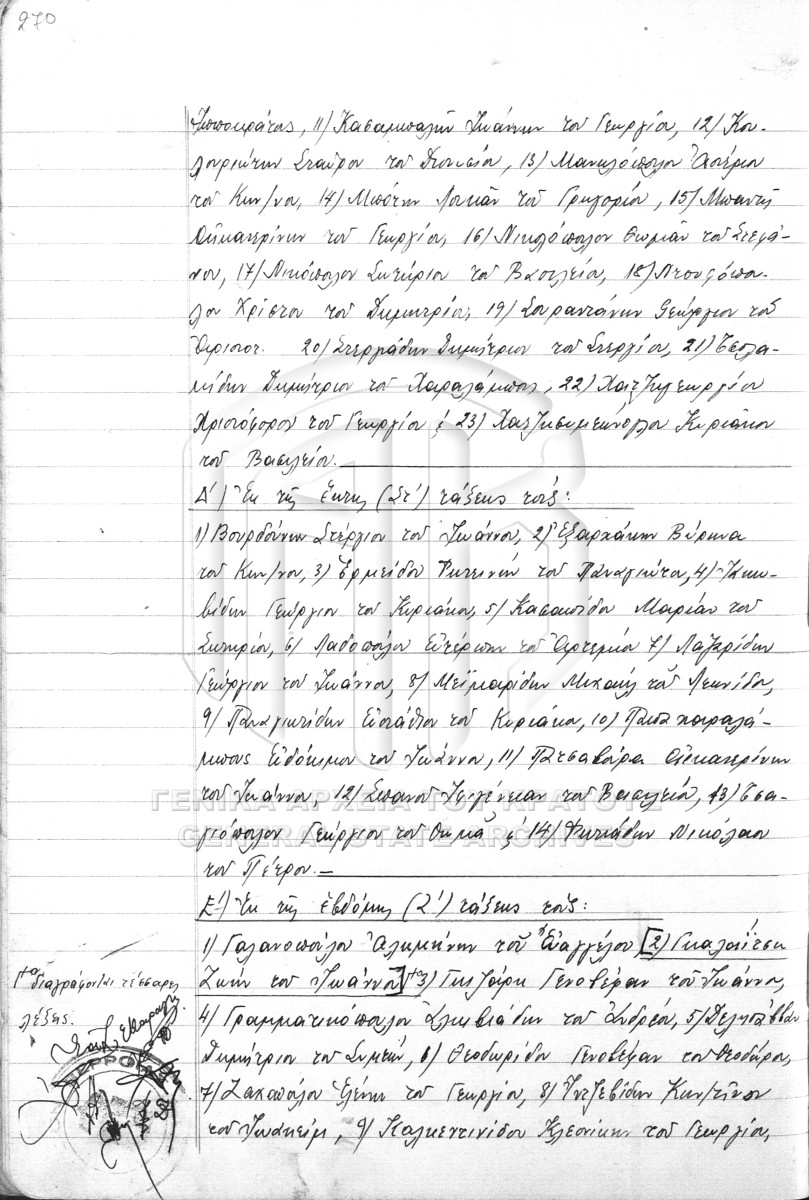 270
Ἱπποκράτας, 11) Κασαμπαλῆν Ἰωάννην τοῦ Γεωργίου, 12) Κου-
λουριώτην Σταῦρον τοῦ Διονυσίου, 13) Μανωλόπουλον Ἀστέριον
τοῦ Κων/νου, 14) Μπότην Λουκᾶν τοῦ Γρηγορίου, 15) Μπαντῆ
Αἰκατερίνην τοῦ Γεωργίου, 16) Νικολόπουλον Θωμᾶν τοῦ Στεφά-
νου, 17) Νικόπουλον Σωτήριον τοῦ Βασιλείου, 18) Ντουφόπου-
λον Χρῖστον τοῦ Δημητρίου, 19) Σαραντάνην Γεώργιον τοῦ
20) Στεργιάδην Δημήτριον τοῦ Στεργίου, 21) Τσελα-
μίδην Δημήτριον τοῦ Χαραλάμπους, 22) Χατζηγεωργίου
Χριστόφορον τοῦ Γεωργίου & 23) Κυριάκον
τοῦ Βασιλείου.
Δ') Ἐκ τῆς ἕκτης (Στ') τάξεως τούς:
1) Βουρδούνην Στέργιον τοῦ Ἰωάννου, 2) Ἐξαρχάκην Βύρωνα
τοῦ Κων/νου, 3) Ἑρμείδου Φωτεινὴν τοῦ Παναγιώτου, 4) Ἰακω-
βίδην Γεώργιον τοῦ Κυριάκου, 5) Κασαπίδου Μαρίαν τοῦ
Σωτηρίου, 6) Λαδοπούλου Εὐτέρπην τοῦ Ἀρτεμίου 7) Λαζαρίδην
Γεώργιον τοῦ Ἰωάννου, 8) Μεϊμαρίδην Μιχαὴλ τοῦ Λεωνίδα,
9) Παναγιωτίδην Εὐστάθιον τοῦ Κυριάκου, 10) Παπαχαραλά-
μπους Εὐδόκιμον τοῦ Ἰωάννου, 11) Πατσαβούρα Αἰκατερίνην
τοῦ Ἰωάννου, 12) Σπανοῦ Ἰφιγένειαν τοῦ Βασιλείου, 13) Τσα-
γιόπουλον Γεώργιον τοῦ Θωμᾶ & 14) Φωτιάδην Νικόλαον
τοῦ Πέτρου.—
ΓΕΝΙΚΑ ΑΡΧΕΙΑ ΤΟΥ ΚΡΑΤΟΥΣ
GENERAL STATE ARCHIVES
Ε') Ἐκ τῆς ἑβδόμης (Ζ') τάξεως τούς:
1) Γαλανοπούλου Ἀλκμήνην τοῦ Εὐαγγέλου [2) Γκαλαΐτσα
Ζωὴν τοῦ Ἰωάννου] 3) Γκιζάρη Γενοβέφαν τοῦ Ἰωάννου,
4) Γραμματικόπουλον Ἀλκιβιάδην τοῦ Ἀνδρέου, 5) Δεληστάββαν
Δημήτριον τοῦ Συμεών, 6) Θεοδωρίδου Γενοβέφαν τοῦ Θεοδώρου,
7) Ζακοπούλου Ἑλένην τοῦ Γεωργίου, 8) Ἰντζεβίδην Κων/τῖνον
τοῦ Ἰωακείμ, 9) Καλκεντινίδου Κλεονίκην τοῦ Γεωργίου,
διαγράφονται τέσσαρες
λέξεις.